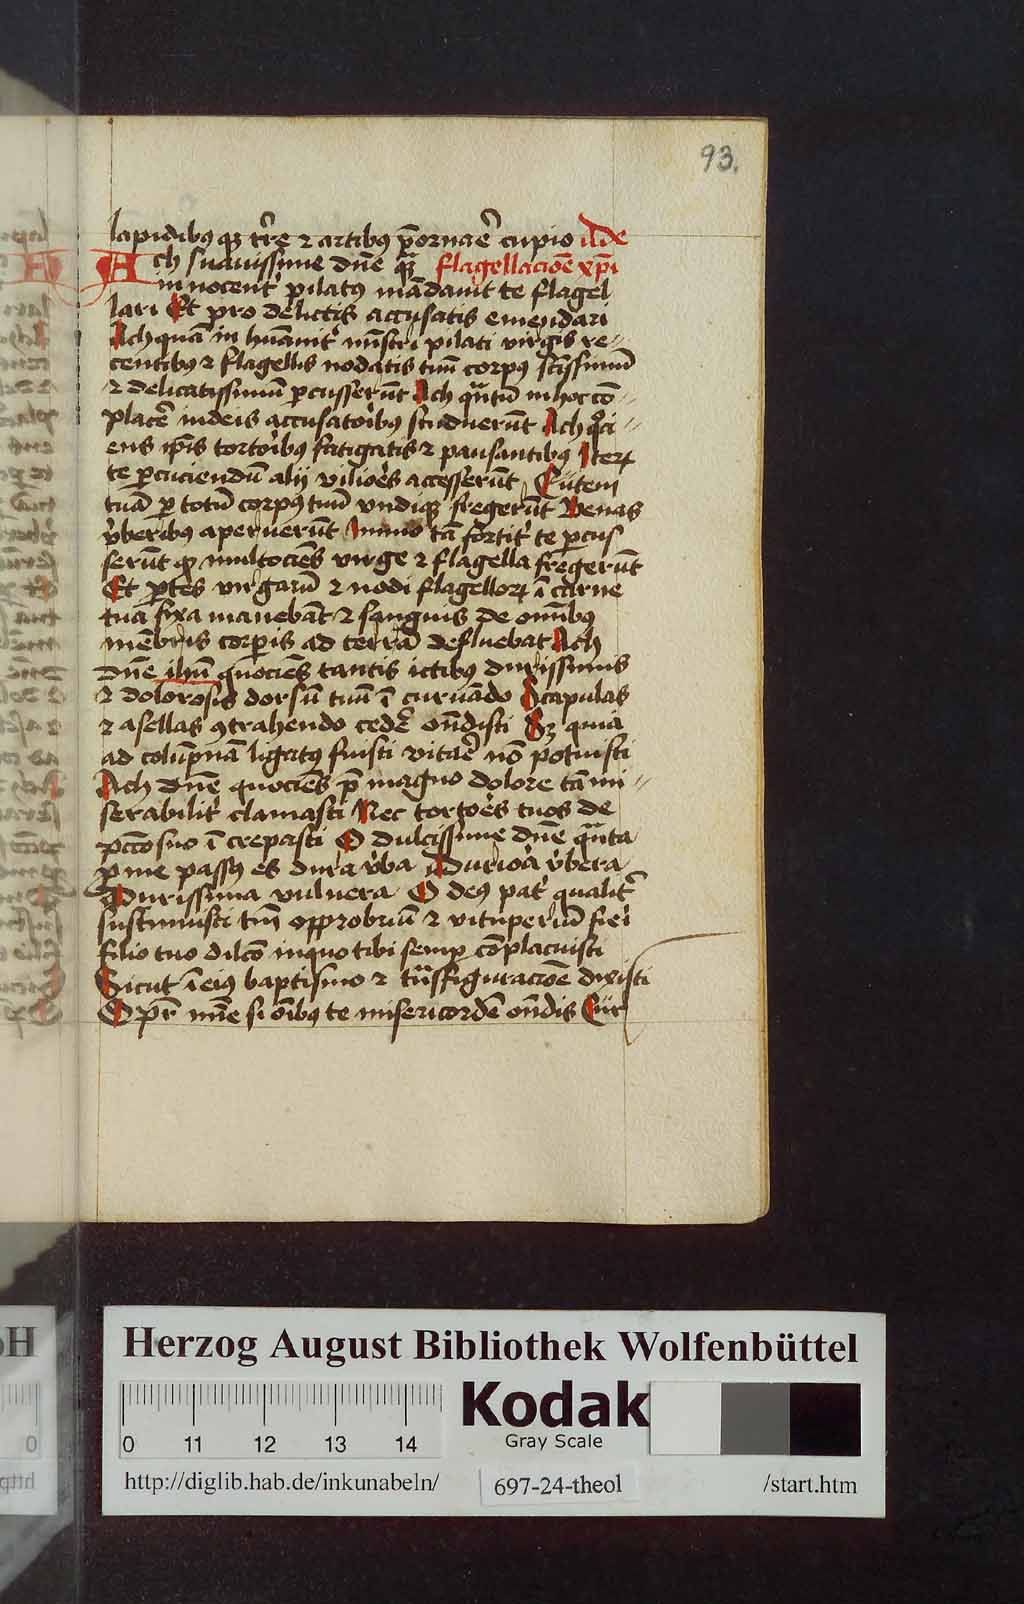 93.
lapidibus quam tr̄re et artibus p̄ornaē cupio De
Ach suauissime dn̄e flagellacōe xp̄i
innocent' pilatus mādauit te flagel
lari Et pro delictis accusatis emendari
Ach quā in hūanit' mīstri pilati virgis re-
centibus et flagellis nodatis tuū corpus sc̄issimū
et delicatissimū percusserūt Ach quātū in hoc cō-
placē iudeis accusatoribus studuerūt Ach qoci-
ens ip̄is tortoribus fatigatis et pausantibus Iterum
te percuciendū alij vilioēs accesserūt Cutem
tuā per totū corpus tuū vndique fregerūt Venas
v̄beribus aperuerūt Immo tā fortit' te percus
serūt quod multociēs virge et flagella fregerūt
Et partes virgarū et nodi flagellorum ī carne
tua fixa manebāt et sanguis de omībus
mēbris corporis ad terrā defluebat Ach
dn̄e ihū quociēs tantis ictibus durissimis
et dolorosis dorsū tuū ī curuādo Scapulas
et asellas contrahendo cedē ōndisti Sed quia
ad colūpnā ligatus fuisti vitaē nō potuisti
Ach dn̄e quociēs pre magno dolore tā mi-
serabilit' clamasti Nec tortoēs tuos de
pccō suo ī crepasti O dulcissime dn̄e quāta
pro me passus es dura v̄ba Durioā v̄bera
Durissima vulnera O deus pat' qualit'
sustinuisti tm̄ opprobriū et vituperiū fiei
filio tuo dilcō in quo tibi semper cōplacuisti
Sicut ī eius baptismo et trāsfiguracōe dixisti
O pr̄ mīe si oībus te misericordē ōndis Cur
Herzog August Bibliothek Wolfenbüttel
0 11 12 13 14
Kodak
Gray Scale
http://diglib.hab.de/inkunabeln/ 697-24-theol /start.htm